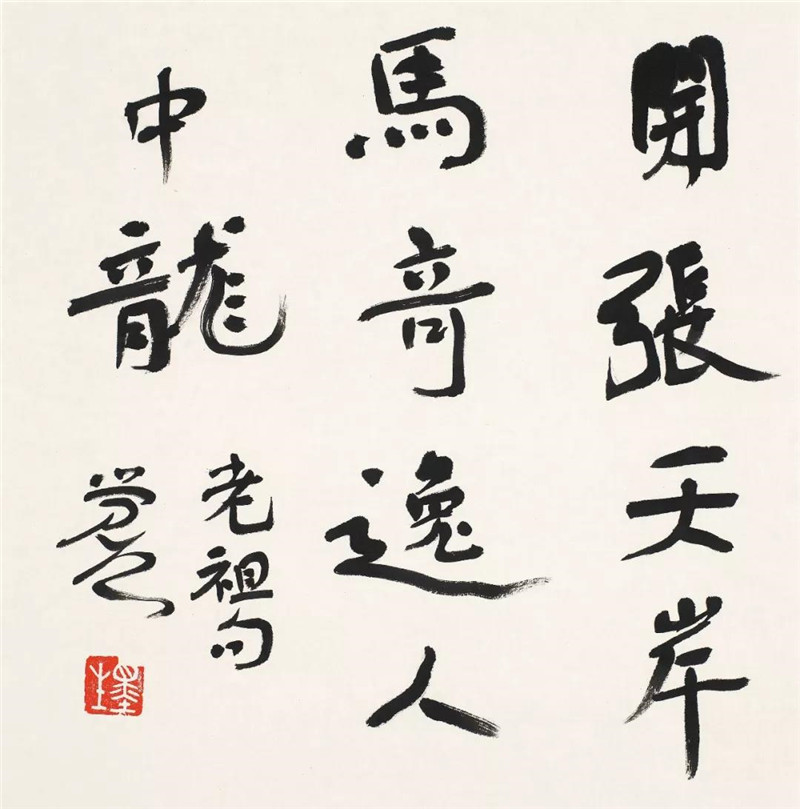 開張天岸
馬竒逸人
中龍
老祖句